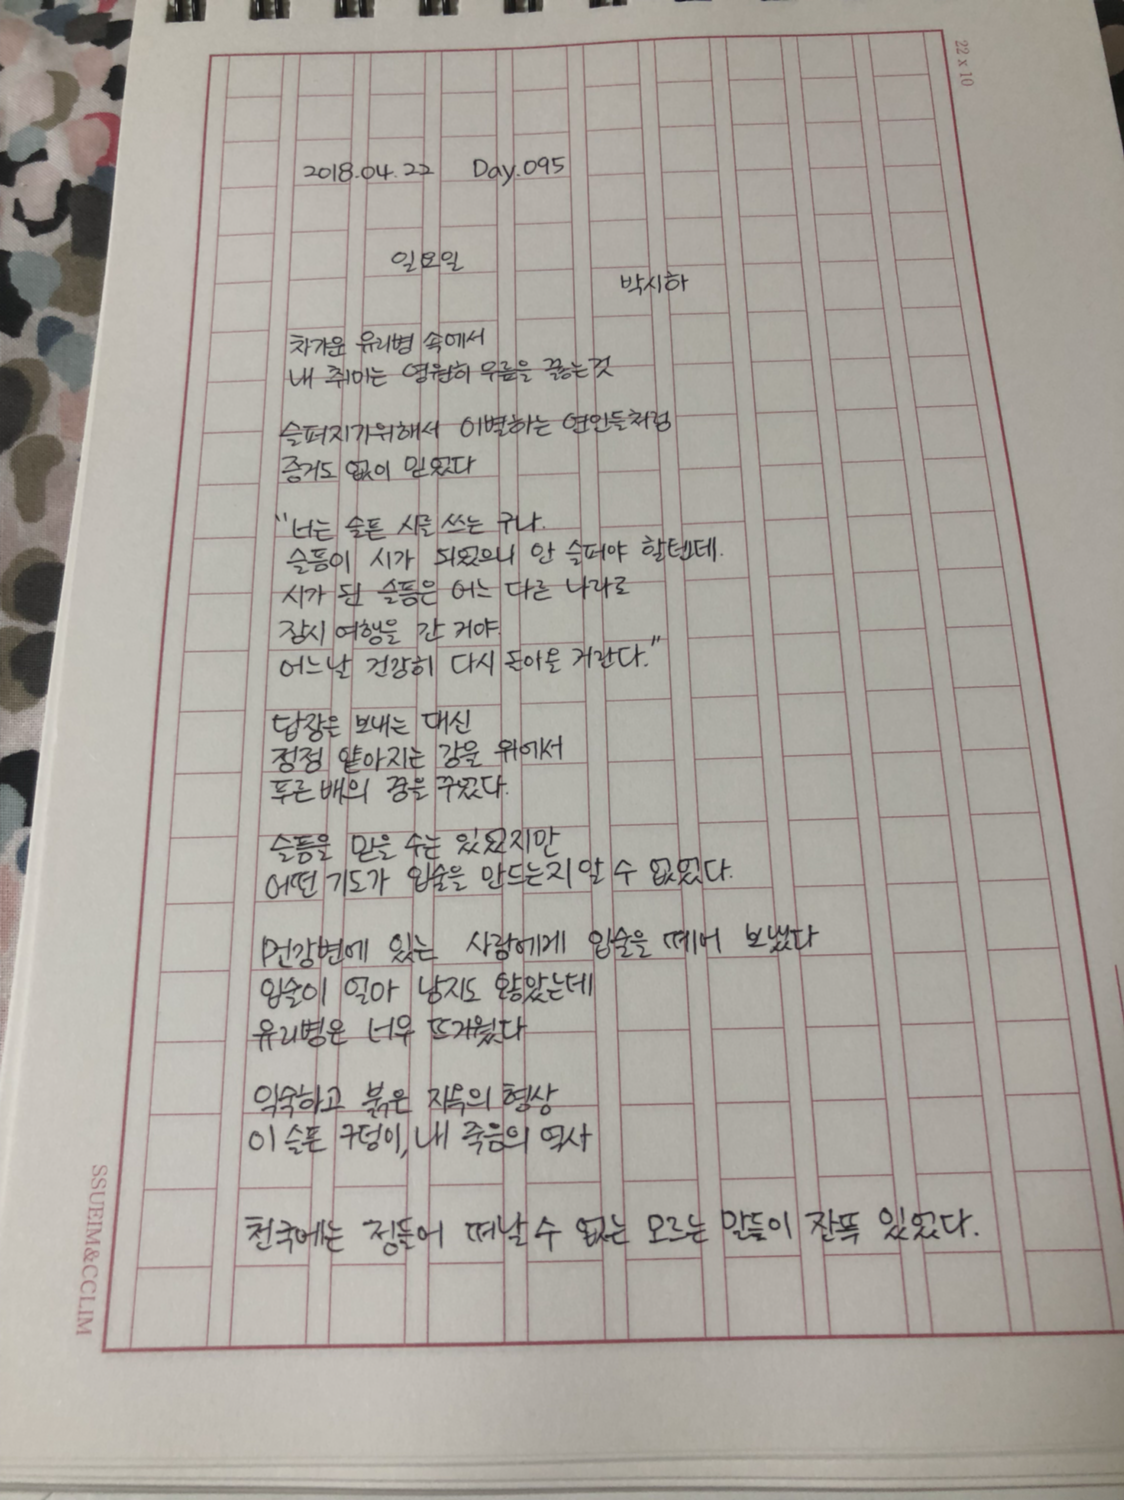 22 x 10
2018.04.22 Day.095
일요일
박시하
차가운 유리병 속에서
내 취미는 영원히 무릎을 꿇는것
슬퍼지기위해서 이별하는 연인들처럼
증거도 없이 믿었다
"너는 슬픈 시를 쓰는 구나.
슬픔이 시가 되었으니 안 슬퍼야 할텐데.
시가 된 슬픔은 어느 다른 나라로
잠시 여행을 간 거야.
어느날 건강히 다시 돌아올 거란다."
답장은 보내는 대신
점점 얕아지는 강을 위에서
푸른 배의 꿈을 꾸었다.
슬픔을 믿을 수는 있었지만
어떤 기도가 입술을 만드는지 알 수 없었다.
먼강변에 있는 사람에게 입술을 떼어 보냈다
입술이 얼마 남지도 않았는데
유리병은 너무 뜨거웠다
익숙하고 붉은 지옥의 형상
이 슬픈 구덩이, 내 죽음의 역사
천국에는 정들어 떠날 수 없는 모르는 말들이 잔뜩 있었다.
SSUEIM&CCLIM